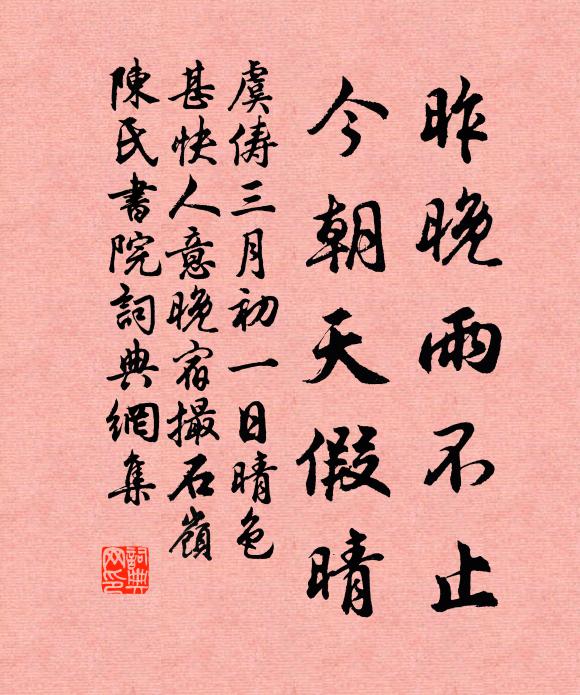 昨晚雨不止
今朝天假晴
虞儔三月初一日晴色
甚快人意晚宿撮石嶺
陳氏書院詞典網集
詞典网印